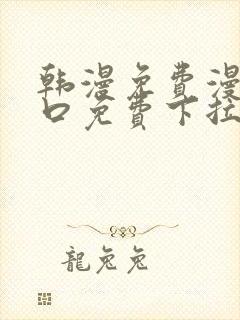 韩漫免费漫
口免费下拉
龍兔兔